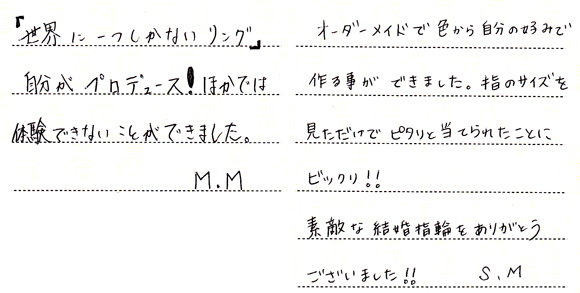 『世界に一つしかないリング』
自分がプロデュース!ほかでは
体験できないことができました。
M.M
オーダーメイドで色から自分の好みで
作る事ができました。指のサイズを
見ただけでピタリと当てられたことに
ビックリ!!
素敵な結婚指輪をありがとう
ございました!! S.M